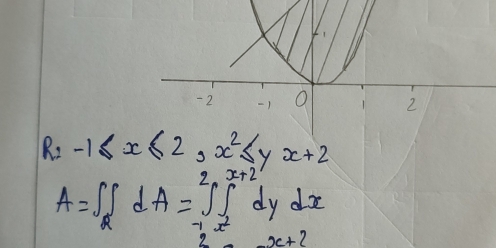 1
-2 -1 0 1 2
R: -1 ≤ x ≤ 2 , x² ≤ y x+2
A = ∬_R dA = ∫_{-1}^{2} ∫_{x²}^{x+2} dy dx
2 x+2